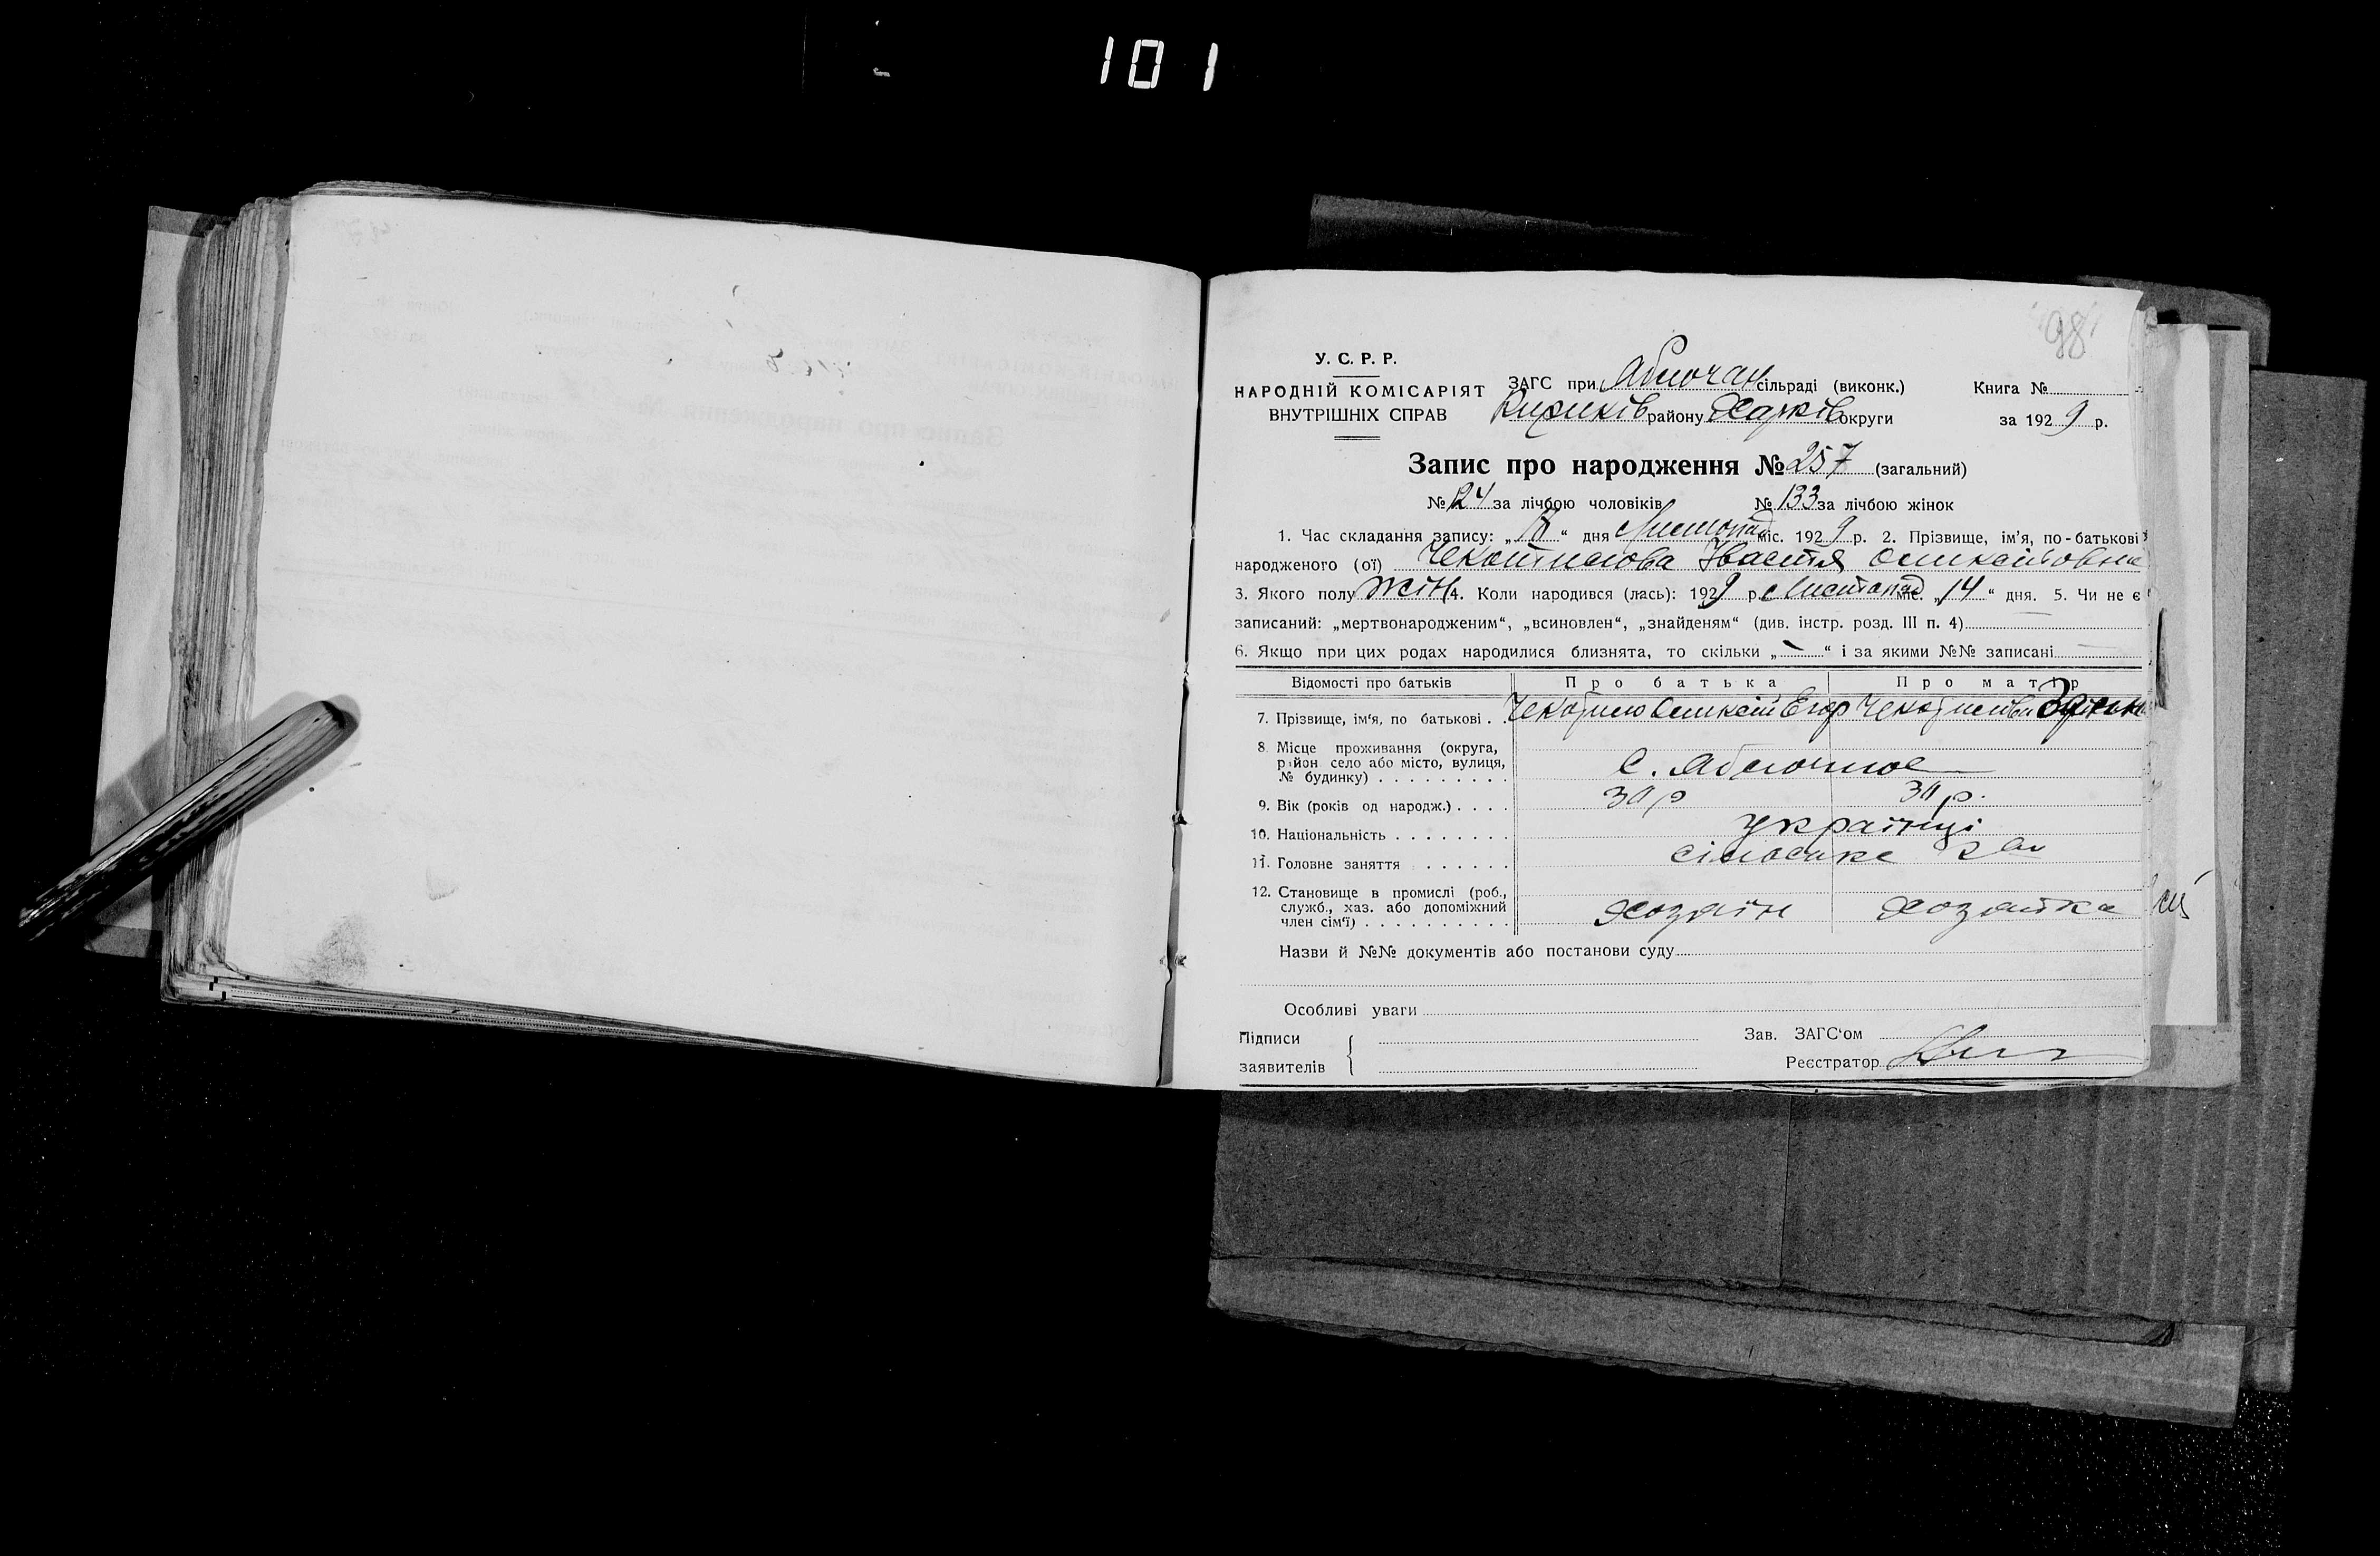 101
98
У. С. Р. Р.
НАРОДНІЙ КОМІСАРІЯТ
ВНУТРІШНІХ СПРАВ
ЗАГС при Яблочан сільраді (виконк.)
Книга №
Кириків району Харків округи
за 1929 р.
Запис про народження № 257 (загальний)
№ 124 за лічбою чоловіків № 133 за лічбою жінок
1. Час складання запису: „ “ дня Листопад міс. 1929 р. 2. Прізвище, ім'я, по-батькові
народженого (ої)
3. Якого полу жін 4. Коли народився (лась): 1929 р. Листопад міс. „14“ дня. 5. Чи не є
записаний: „мертвонародженим“, „всиновлен“, „знайденям“ (див. інстр. розд. III п. 4)
6. Якщо при цих родах народилися близнята, то скільки „ “ і за якими №№ записані
Відомості про батьків Про батька Про матір
7. Прізвище, ім'я, по батькові . . Егор
8. Місце проживання (округа,
район село або місто, вулиця,
№ будинку) . . . . . . . . . с. Яблочное
9. Вік (років од народж.) . . . . 30 р 30 р.
10. Національність . . . . . . . . українці
11. Головне заняття . . . . . . сільське
12. Становище в промислі (роб.,
служб., хаз. або допоміжний
член сім'ї) . . . . . . . . . . хозяїн хозяйка
Назви й №№ документів або постанови суду
Особливі уваги
Підписи
заявителів
Зав. ЗАГС'ом
Реєстратор